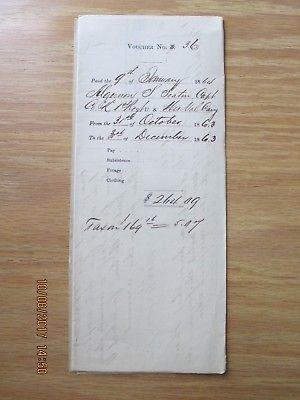 VOUCHER No. 36
Paid the 9th of January 1864
Algernon S Seaton Capt
From the 31st of October 1863
To the 3rd of December 1863
Pay
Subsistence
Forage
Clothing
$ 264.09
Tax on 169 = 5.07
10/08/2017 14:50